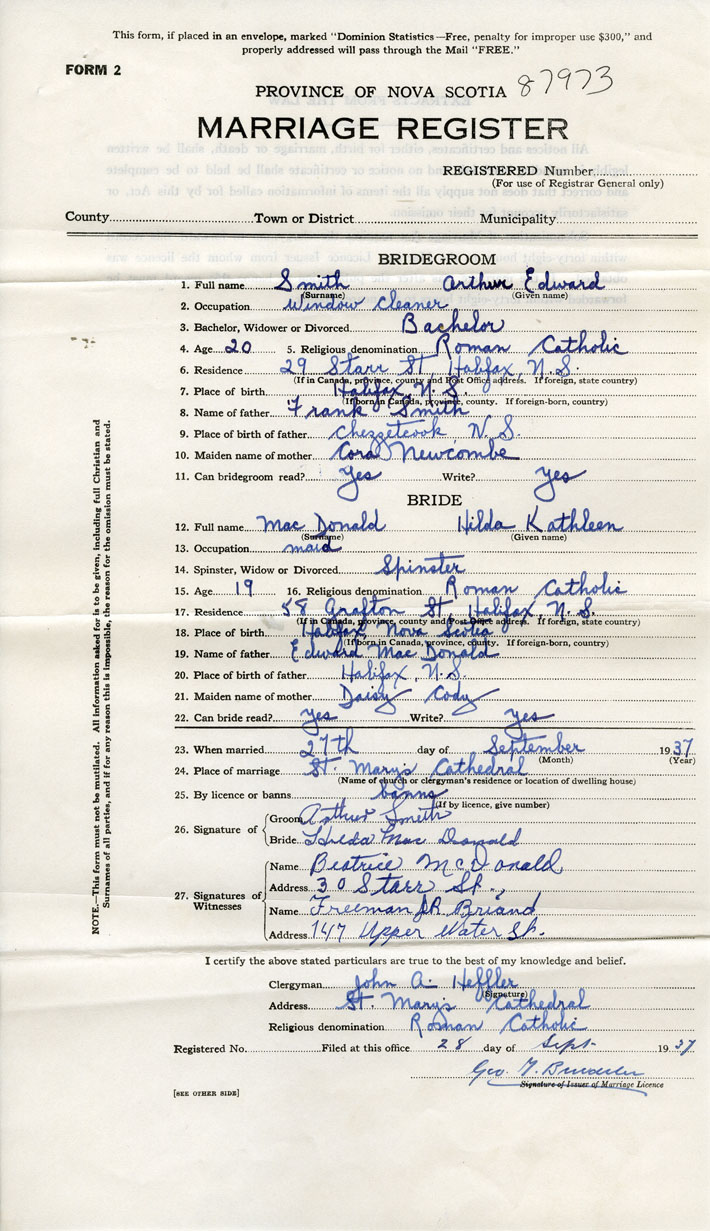 This form, if placed in an envelope, marked "Dominion Statistics—Free, penalty for improper use $300," and
properly addressed will pass through the Mail "FREE."
FORM 2
PROVINCE OF NOVA SCOTIA 87973
MARRIAGE REGISTER
REGISTERED Number
(For use of Registrar General only)
County Town or District Municipality
BRIDEGROOM
1. Full name Smith Arthur Edward
(Surname) (Given name)
2. Occupation window cleaner
3. Bachelor, Widower or Divorced Bachelor
4. Age 20 5. Religious denomination Roman Catholic
6. Residence 29 Starr St Halifax, N.S.
(If in Canada, province, county and Post Office address. If foreign, state country)
7. Place of birth Halifax, N.S.
(If born in Canada, province, county. If foreign-born, country)
8. Name of father Frank Smith
9. Place of birth of father Chezzetcook N.S.
10. Maiden name of mother Cora Newcombe
11. Can bridegroom read? yes Write? yes
BRIDE
12. Full name Mac Donald Hilda Kathleen
(Surname) (Given name)
13. Occupation maid
14. Spinster, Widow or Divorced Spinster
15. Age 19 16. Religious denomination Roman Catholic
17. Residence 58 Grafton St, Halifax, N.S.
(If in Canada, province, county and Post Office address. If foreign, state country)
18. Place of birth Halifax, Nova Scotia
(If born in Canada, province, county. If foreign-born, country)
19. Name of father Edward Mac Donald
20. Place of birth of father Halifax, N.S.
21. Maiden name of mother Daisy Cody
22. Can bride read? yes Write? yes
23. When married 27th day of September 1937
(Month) (Year)
24. Place of marriage St. Mary's Cathedral
(Name of church or clergyman's residence or location of dwelling house)
25. By licence or banns banns
(If by licence, give number)
26. Signature of
Groom Arthur Smith
Bride Hilda Mac Donald
27. Signatures of Witnesses
Name Beatrice McDonald
Address 30 Starr St.,
Name Freeman J.R. Briand
Address 147 Upper Water St.
I certify the above stated particulars are true to the best of my knowledge and belief.
Clergyman John A. Heffler
(Signature)
Address St. Mary's Cathedral
Religious denomination Roman Catholic
Registered No. Filed at this office 28 day of Sept. 1937
Geo.
Signature of Issuer of Marriage Licence
[SEE OTHER SIDE]
NOTE.—This form must not be mutilated. All information asked for is to be given, including full Christian and
Surnames of all parties, and if for any reason this is impossible, the reason for the omission must be stated.